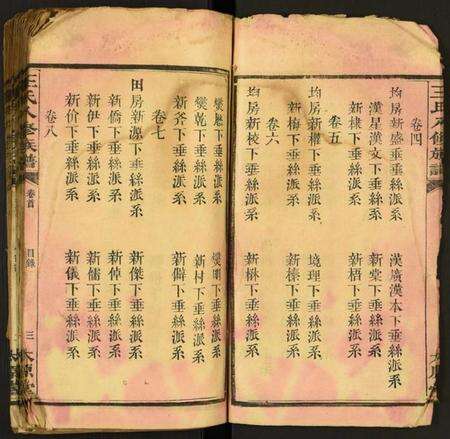 卷四
均房新盛垂絲派系
漢星漢文下垂絲派系 漢廣漢本下垂絲派系
新棣下垂絲派系 新棠下垂絲派系
卷五 新梧下垂絲派系
均房新權下垂絲派系 境理下垂絲派系
新梅下垂絲派系 新榛下垂絲派系
卷六
均房新棱下垂絲派系 新楙下垂絲派系
燮乾下垂絲派系 燮明下垂絲派系
新斧下垂絲派系 新村下垂絲派系
新僻下垂絲派系
卷七
田房新源下垂絲派系 新傑下垂絲派系
新僑下垂絲派系 新倬下垂絲派系
新伊下垂絲派系 新儒下垂絲派系
新价下垂絲派系 新儀下垂絲派系
卷八
王氏八修族譜 卷首 目錄 三